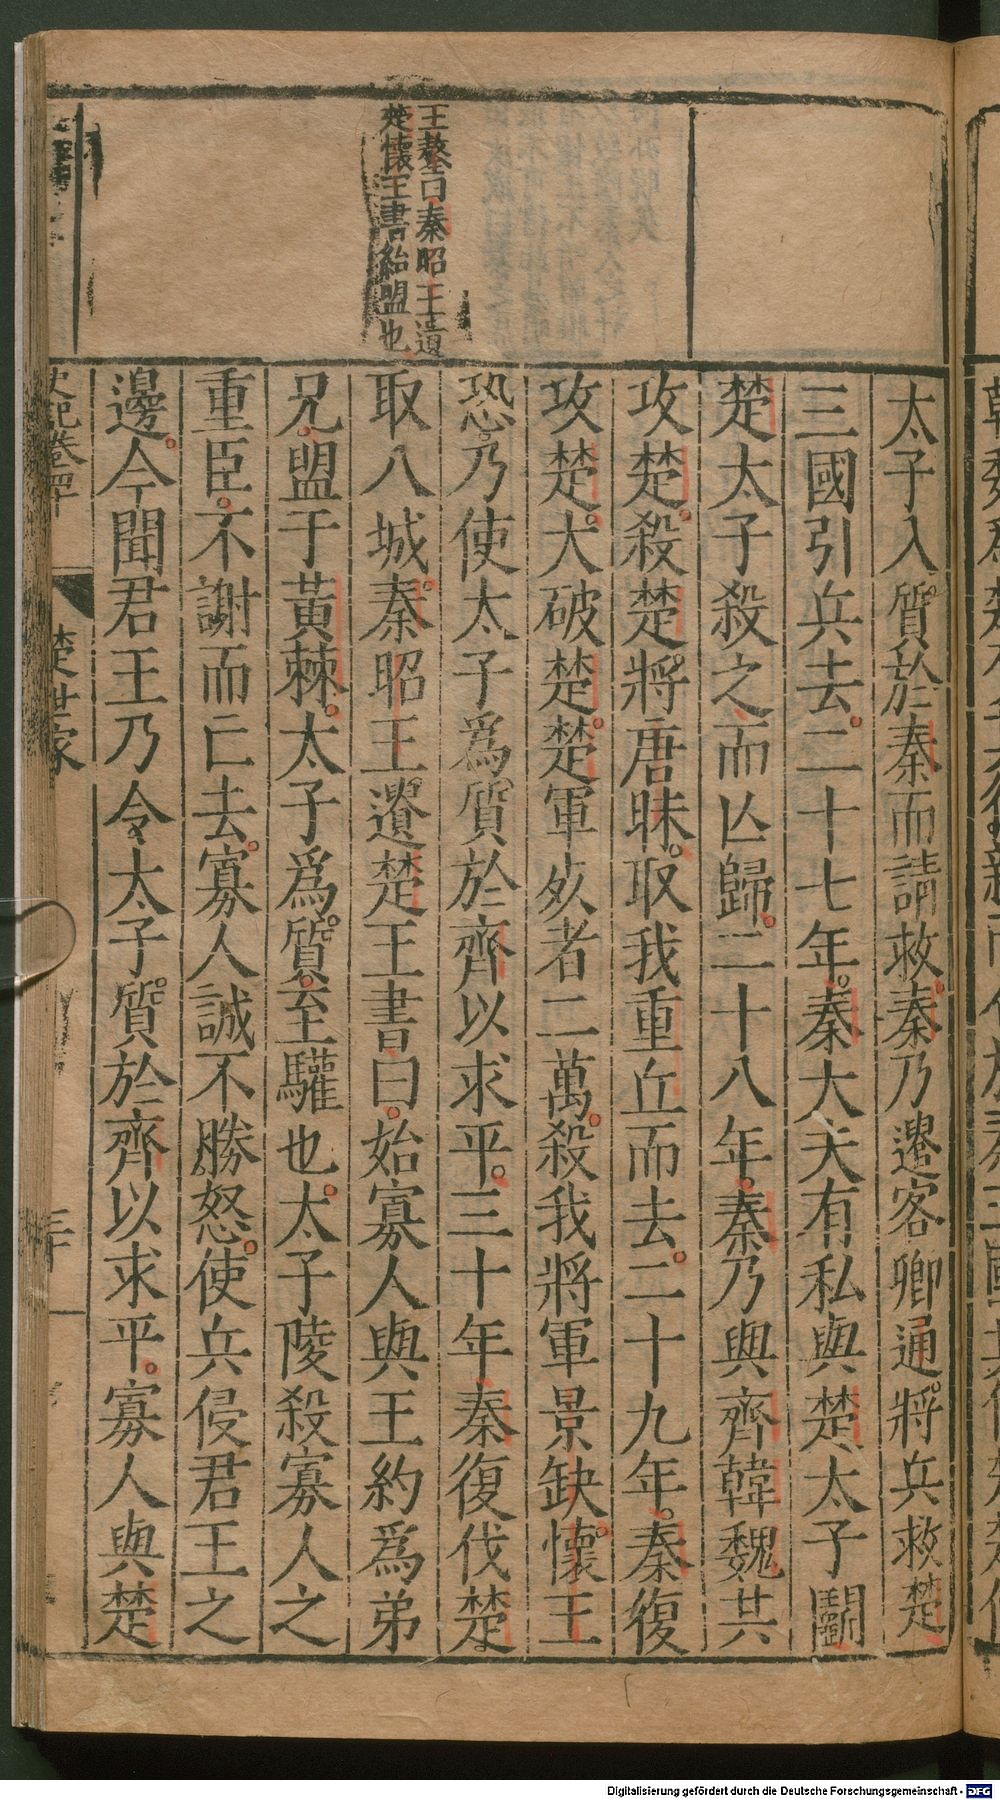 王鏊曰秦昭王遺
楚懷王書紿盟也
太子入質於秦而請救秦乃遣客卿通將兵救楚
三國引兵去二十七年秦大夫有私與楚太子鬭
楚太子殺之而亾歸二十八年秦乃與齊韓魏共
攻楚殺楚將唐眛取我重丘而去二十九年秦復
攻楚大破楚楚軍死者二萬殺我將軍景缺懷王
恐乃使太子爲質於齊以求平三十年秦復伐楚
取八城秦昭王遺楚王書曰始寡人與王約爲弟
兄盟于黃棘太子爲質至驩也太子陵殺寡人之
重臣不謝而亡去寡人誠不勝怒使兵侵君王之
邊今聞君王乃令太子質於齊以求平寡人與楚
史記卷四十
楚世家
Digitalisierung gefördert durch die Deutsche Forschungsgemeinschaft - DFG